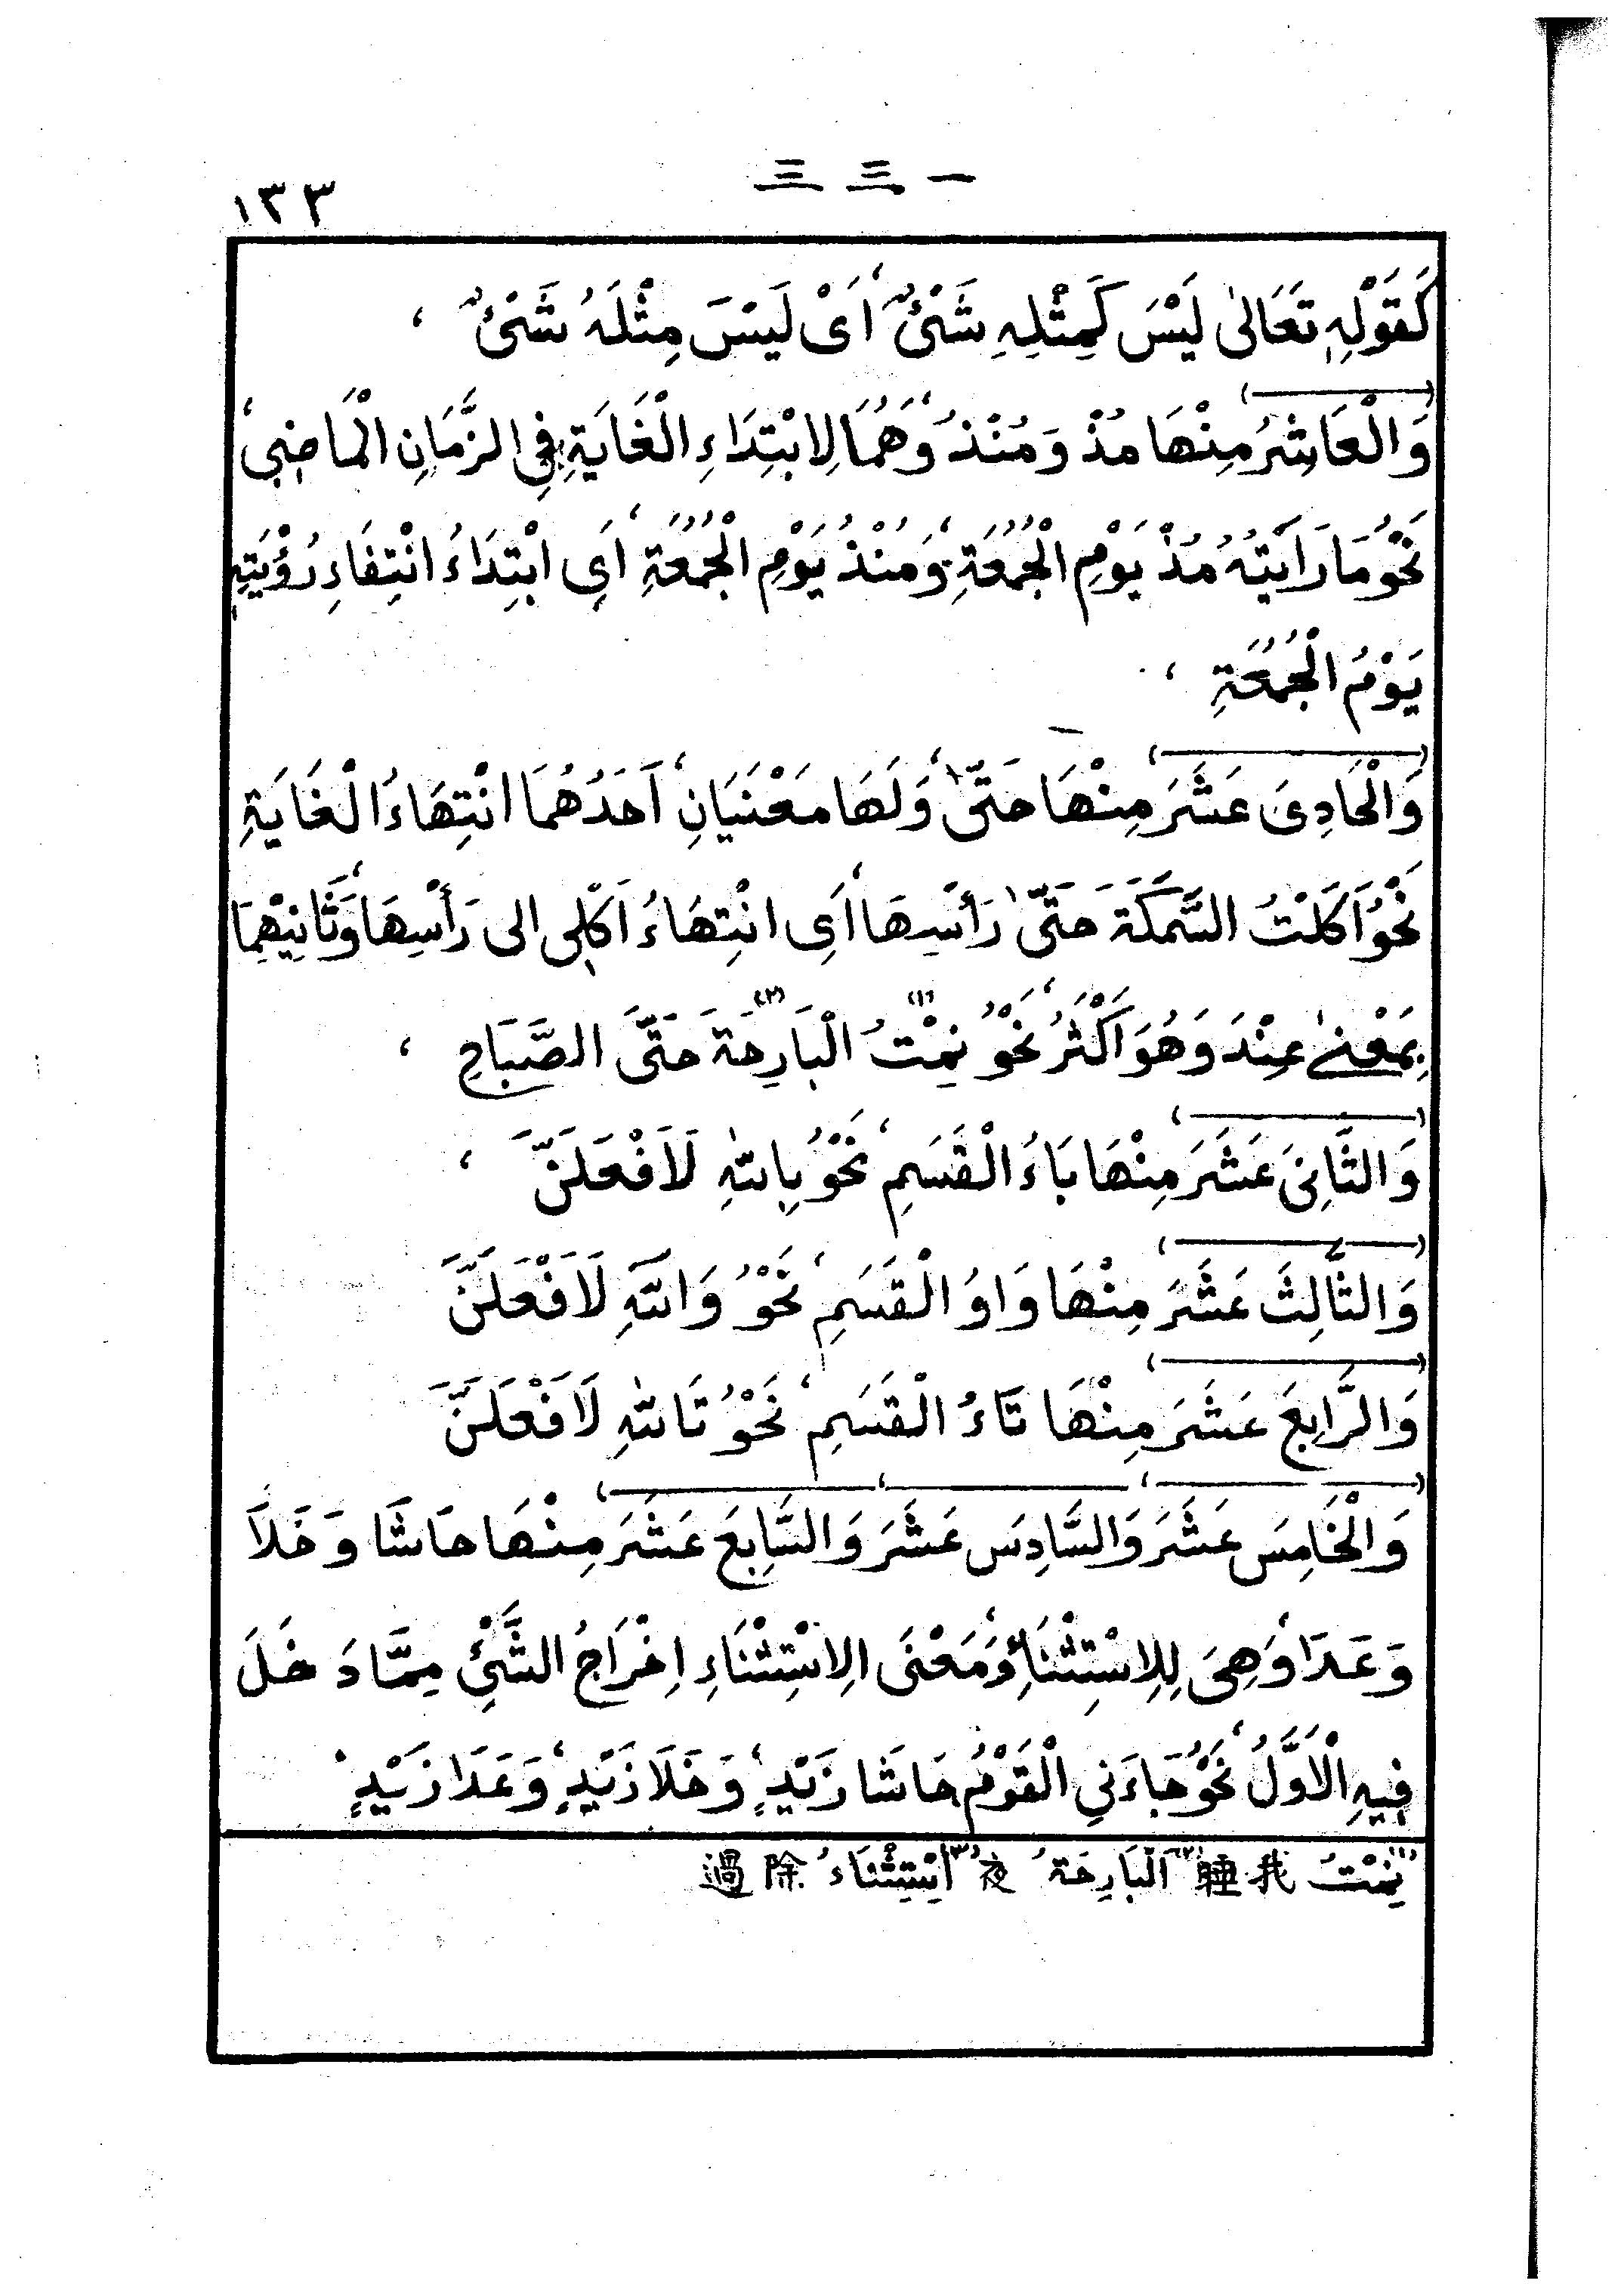 一三三
١٣٣
كَقَوْلِهٖ تَعَالٰى لَيْسَ كَمِثْلِهِ شَىْئٌ، اَىْ لَيْسَ مِثْلَهُ شَىْئٌ،
وَالْعَاشِرُ مِنْهَا مُذْ وَمُنْذُ، وَهُمَا لِابْتِدَاءِ الْغَايَةِ فِى الزَّمَانِ الْمَاضِى،
نَحْوُ مَا رَاَيْتُهُ مُذْ يَوْمِ الْجُمُعَةِ، وَمُنْذُ يَوْمِ الْجُمُعَةِ، اَىِ ابْتِدَاءُ انْتِفَاءِ رُؤْيَتِهٖ
يَوْمُ الْجُمُعَةِ،
وَالْحَادِىَ عَشَرَ مِنْهَا حَتّٰى، وَلَهَا مَعْنَيَانِ، اَحَدُهُمَا انْتِهَاءُ الْغَايَةِ
نَحْوُ اَكَلْتُ السَّمَكَةَ حَتّٰى رَأْسِهَا، اَىِ انْتِهَاءُ اَكْلِى الى رَأْسِهَا، وَثَانِيْهِمَا
بِمَعْنٰى عِنْدَ وَهُوَ اَكْثَرُ، نَحْوُ نِمْتُ (١) الْبَارِحَةَ (٢) حَتَّى الصَّبَاحِ،
وَالثَّانِىَ عَشَرَ مِنْهَا بَاءُ الْقَسَمِ، نَحْوُ بِاللّٰهِ لَاَفْعَلَنَّ،
وَالثَّالِثَ عَشَرَ مِنْهَا وَاوُ الْقَسَمِ، نَحْوُ وَاللّٰهِ لَاَفْعَلَنَّ
وَالرَّابِعَ عَشَرَ مِنْهَا تَاءُ الْقَسَمِ، نَحْوُ تَاللّٰهِ لَاَفْعَلَنَّ
وَالْخَامِسَ عَشَرَ وَالسَّادِسَ عَشَرَ وَالسَّابِعَ عَشَرَ مِنْهَا حَاشَا وَخَلَا
وَعَدَا، وَهِىَ لِلِاسْتِثْنَاءِ، وَمَعْنَى الِاسْتِثْنَاءِ اِخْرَاجُ الشَّىْئِ مِمَّا دَخَلَ
فِيهِ الْاَوَّلُ، نَحْوُ جَاءَنِى الْقَوْمُ حَاشَا زَيْدٍ، وَخَلَا زَيْدٍ، وَعَدَا زَيْدٍ،
(١) نِمْتُ 我睡 (٢) اَلْبَارِحَةُ 夜 (٣) اِسْتِثْنَاءُ 除過